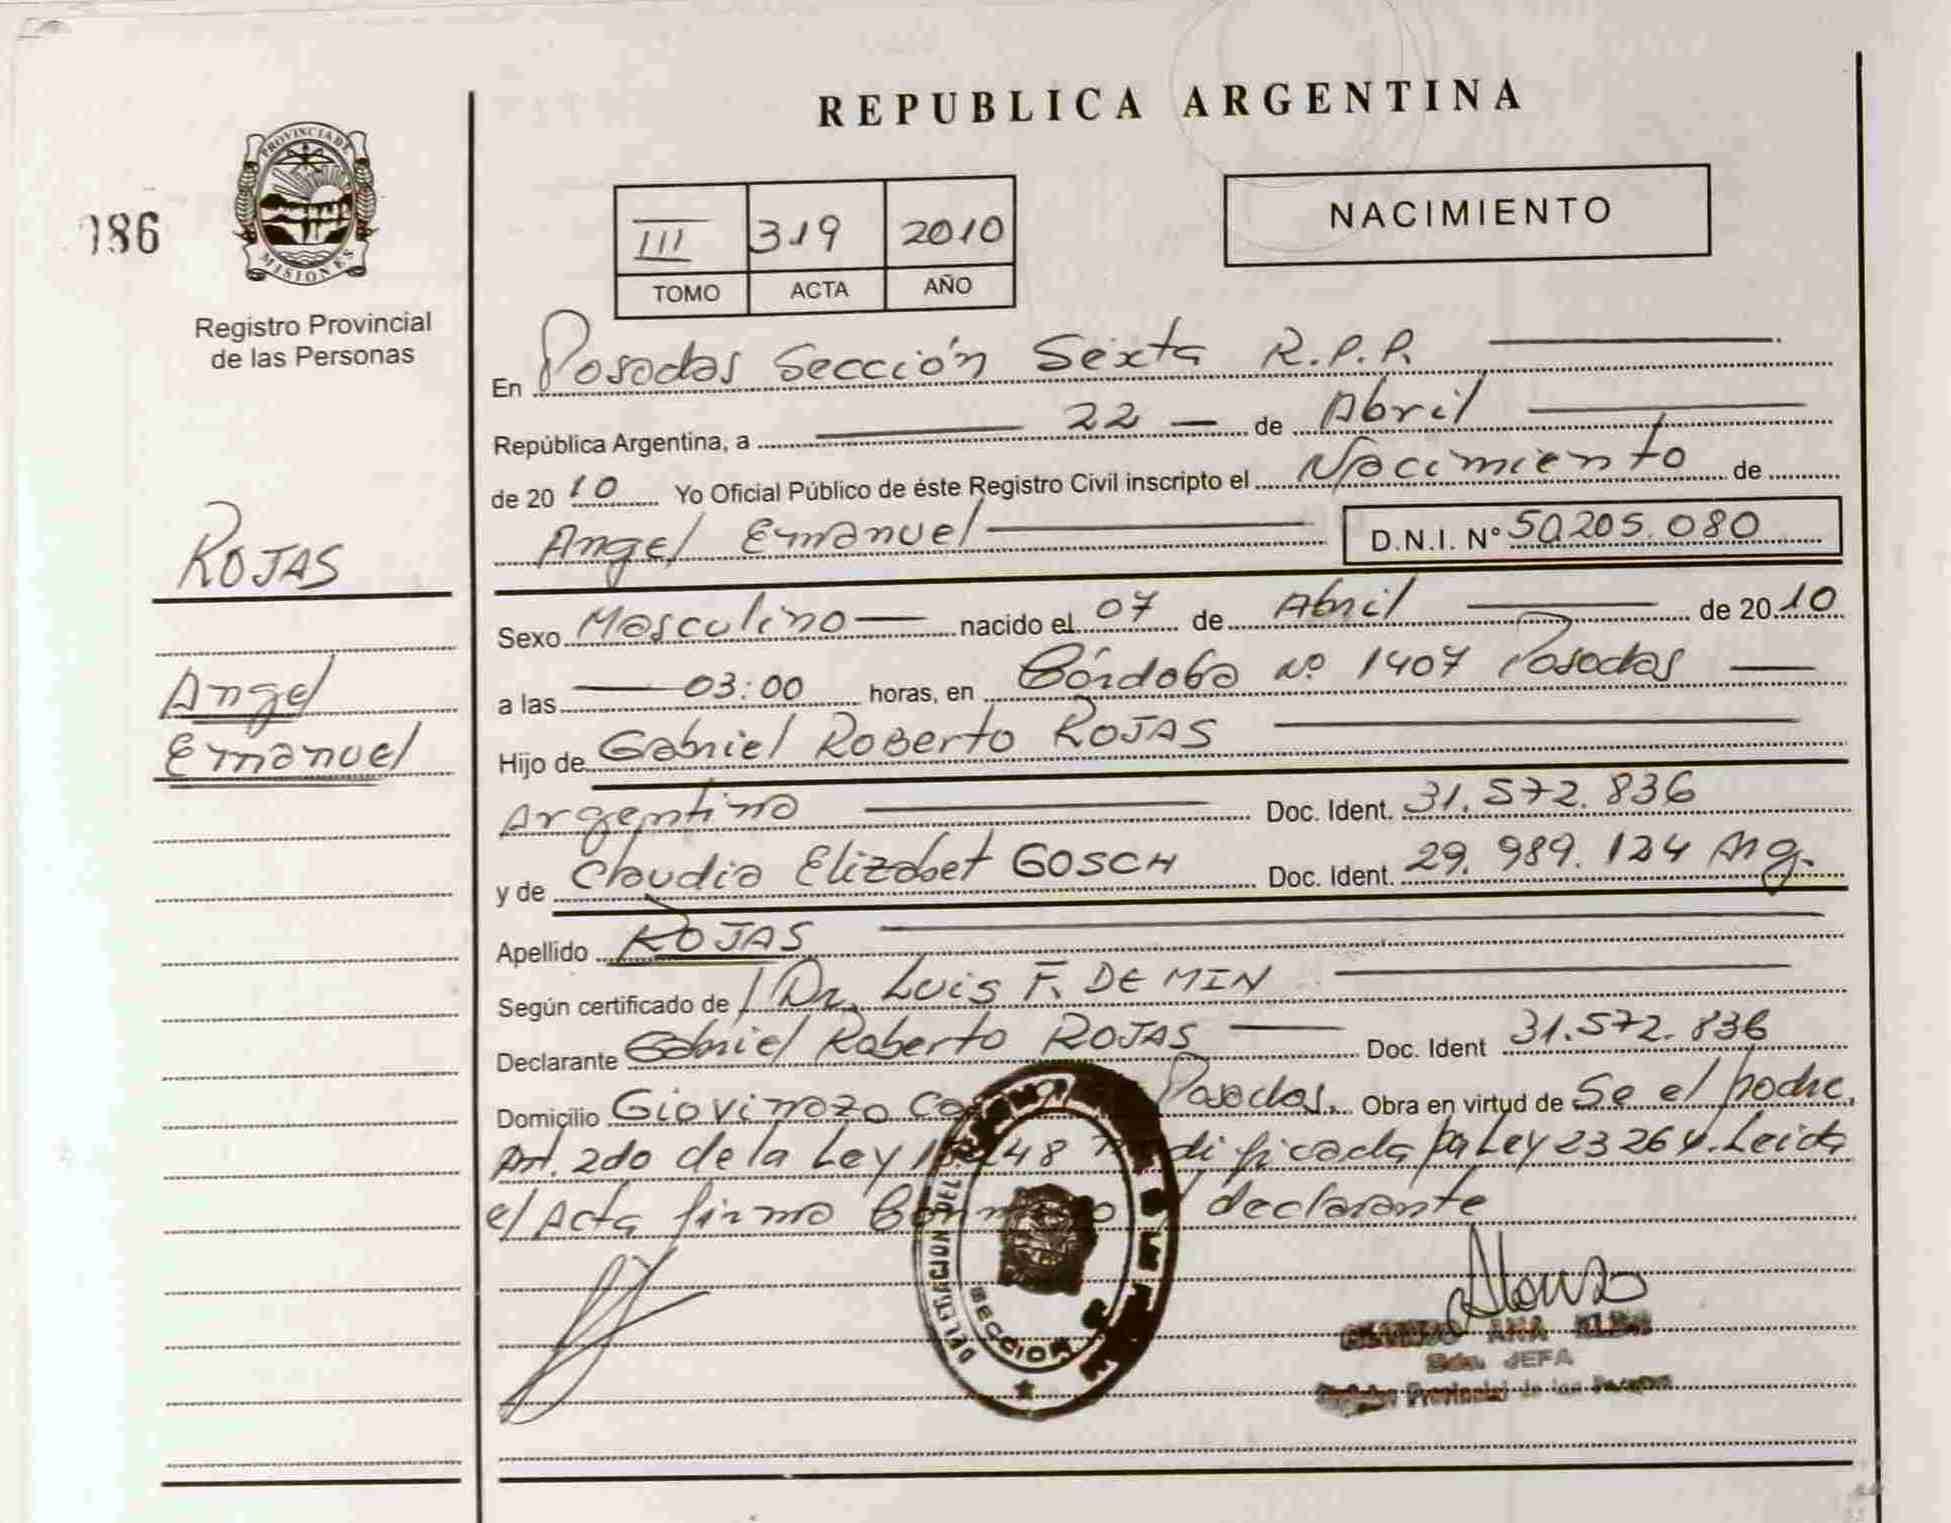 REPUBLICA ARGENTINA
PROVINCIA DE
MISIONES
Registro Provincial
de las Personas
III 319 2010
TOMO ACTA AÑO
NACIMIENTO
En Posadas Sección Sexta R.P.P.
República Argentina, a 22 de Abril
de 2010 Yo Oficial Público de éste Registro Civil inscripto el Nacimiento de
Angel Emanuel D.N.I. Nº 50.205.080
ROJAS
Angel
Emanuel
Sexo Masculino nacido el 07 de Abril de 2010
a las 03:00 horas, en Córdoba Nº 1407 Posadas
Hijo de Gabriel Roberto ROJAS
Argentino Doc. Ident. 31.572.836
y de Claudia Elizabet GOSCH Doc. Ident. 29.989.124 Arg.
Apellido ROJAS
Según certificado de Dr. Luis F. DE MIN
Declarante Gabriel Roberto ROJAS Doc. Ident 31.572.836
Domicilio Giovinazo Posadas. Obra en virtud de Se el padre.
Art. 2do de la Ley modificada pa Ley 23264. Leida
el Acta firma declarante
SECCION
ANA
JEFA
Provincial de las